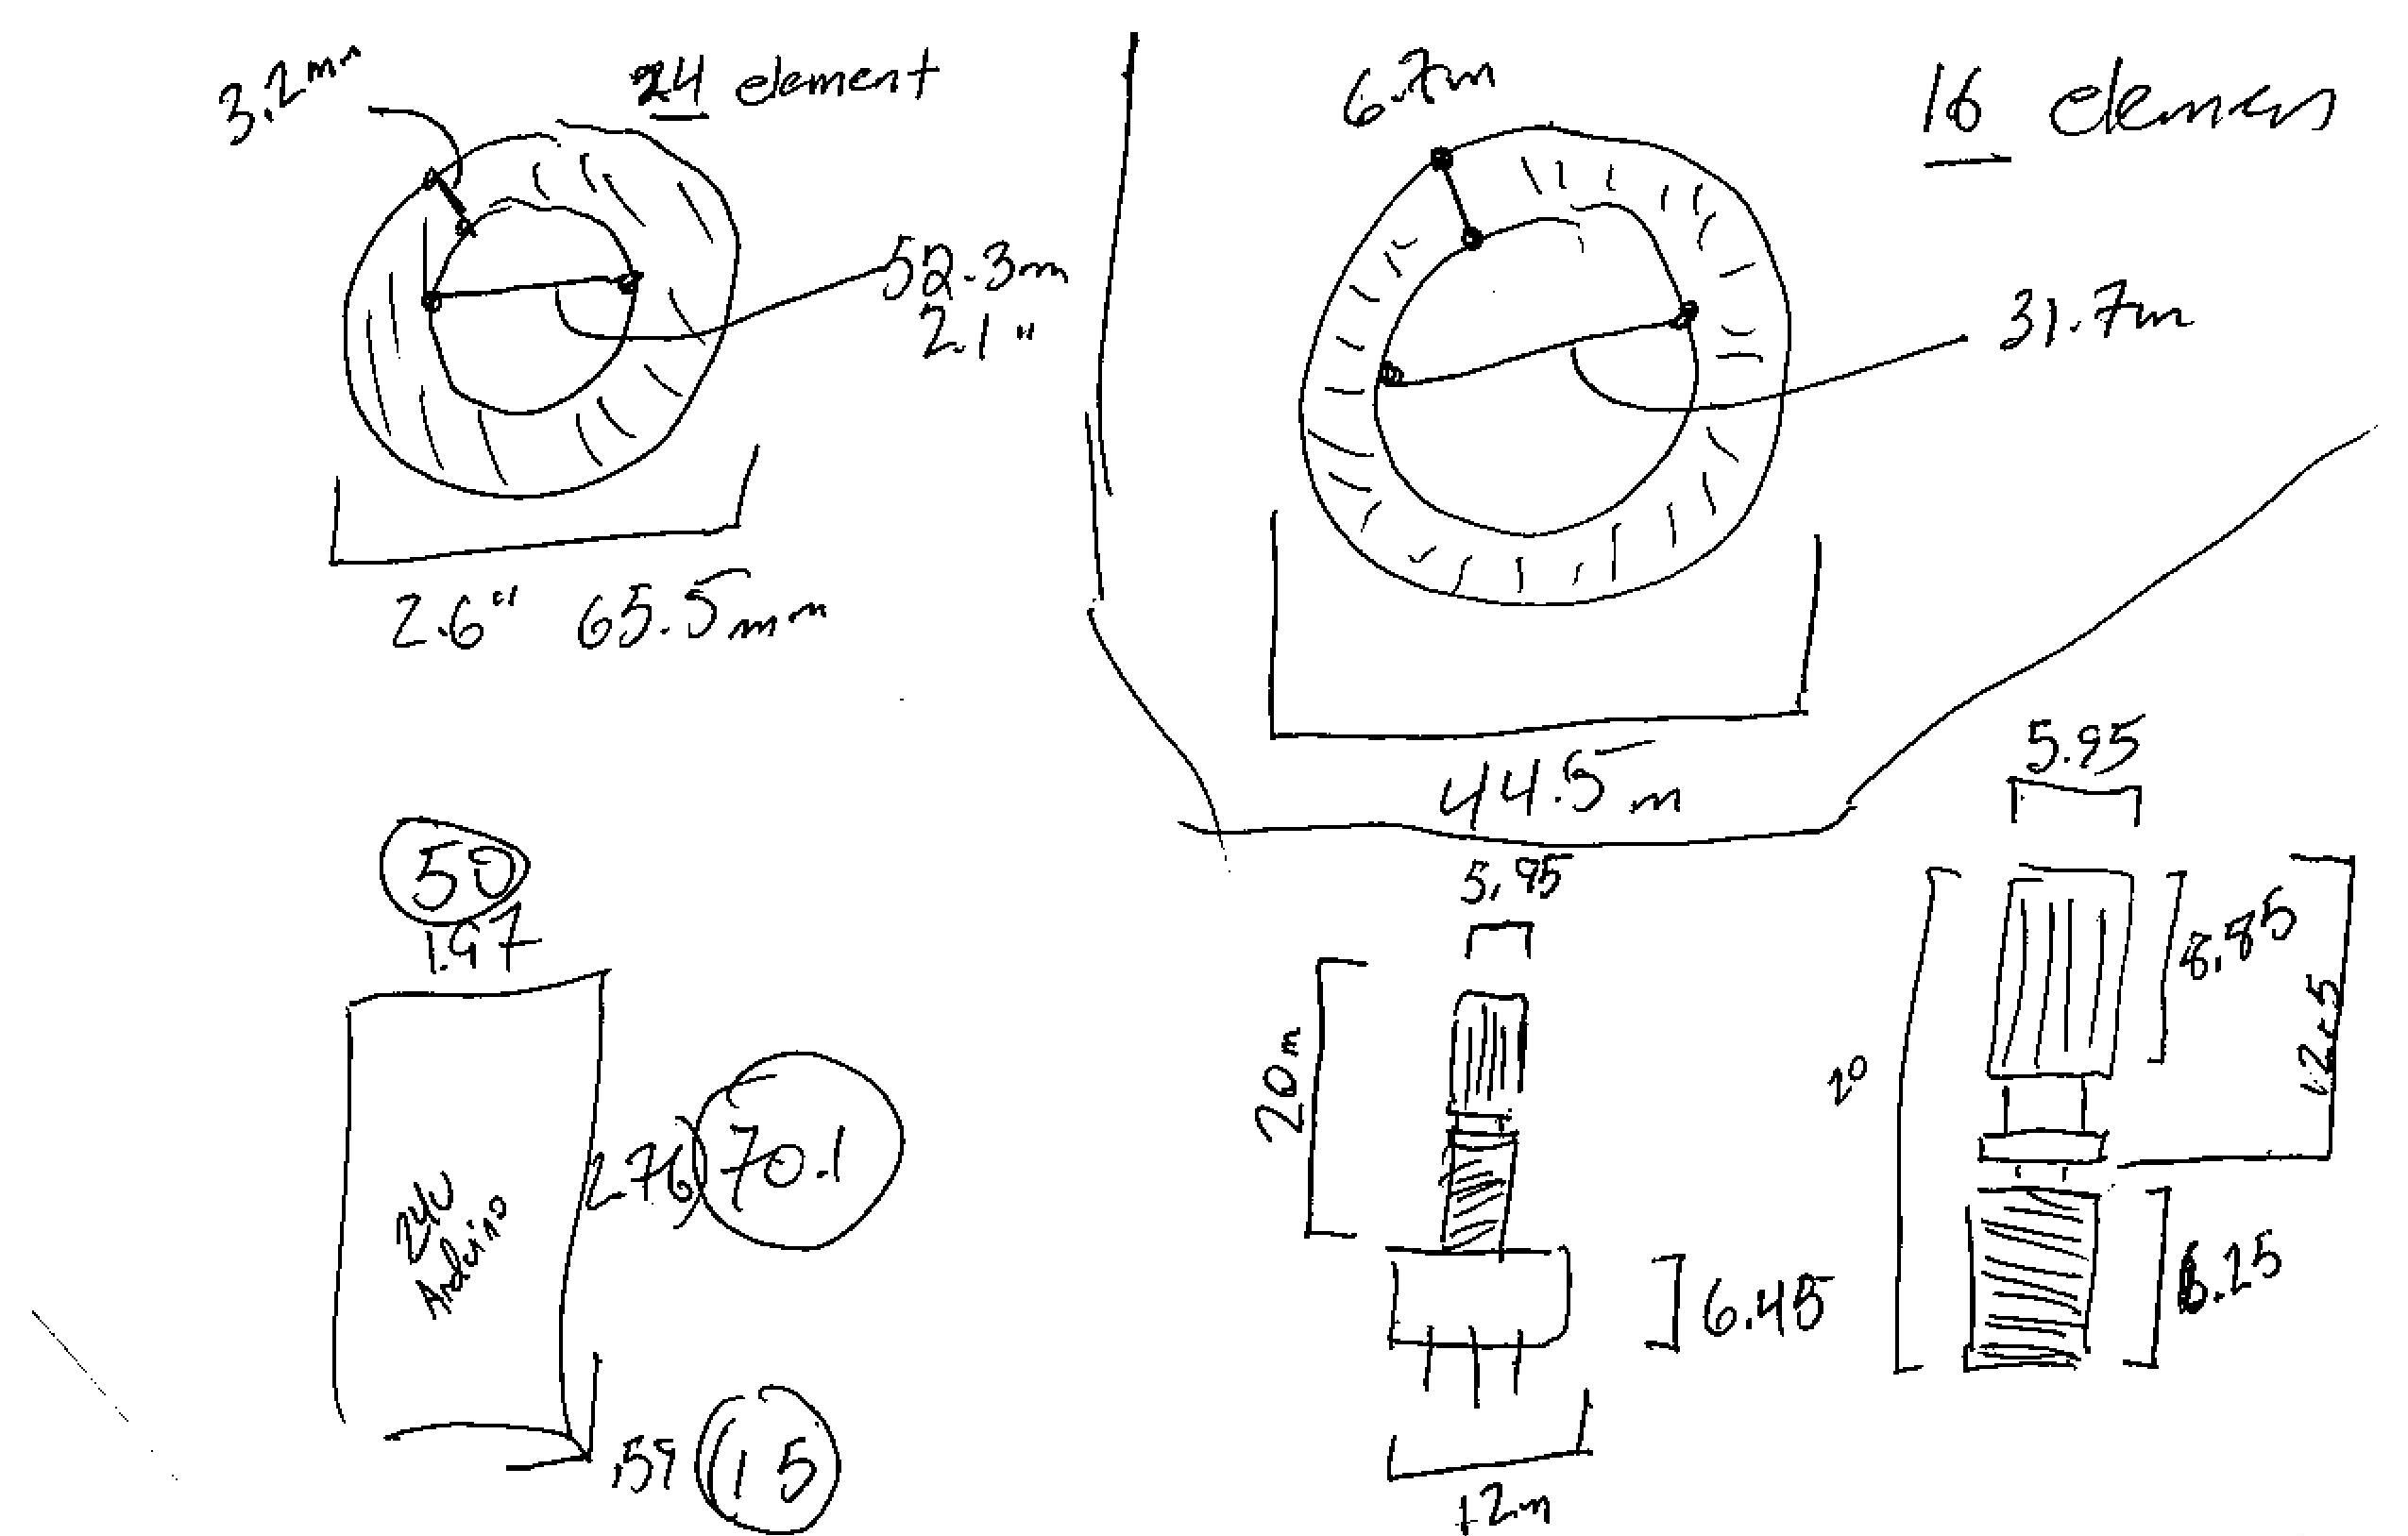 3.2mm
24 element
52.3m
2.1"
2.6" 65.5mm
6.7m
16
31.7m
44.5m
50
1.97
2.76
70.1
Arduino
.59
15
5.95
20m
6.45
12m
5.95
8.85
12.5
20
6.25